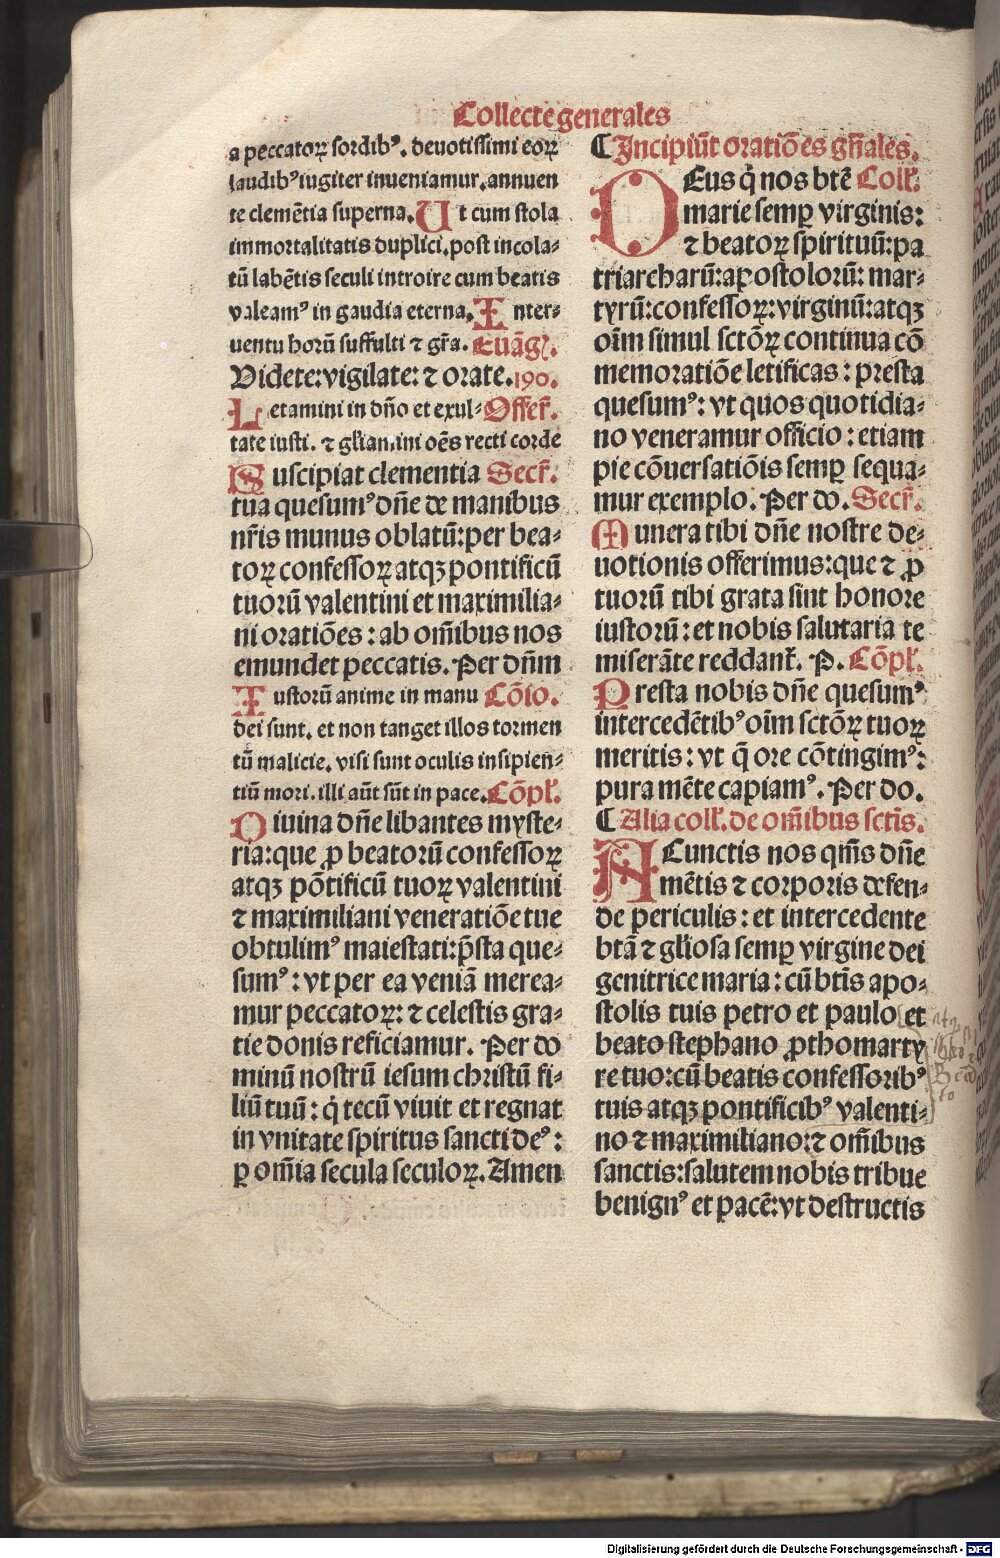 Collecte generales
a peccatoꝝ sordibꝰ. deuotissimi eoꝝ
laudibꝰ iugiter inueniamur. annuen
te clemētia superna. Ut cum stola
immortalitatis duplici. post incola⸗
tū labētis seculi introire cum beatis
valeamꝰ in gaudia eterna. Inter⸗
uentu horū suffulti ⁊ gr̄a. Euāgͥ.
Videte: vigilate: ⁊ orate. 190.
Letamini in dn̄o et exul⸗ Offer̄.
tate iusti. ⁊ gl̄iamini oēs recti corde
Suscipiat clementia Secr̄.
tua quesumꝰ dn̄e de manibus
nr̄is munus oblatū: per bea⸗
toꝝ confessoꝝ atqꝫ pontificū
tuorū valentini et maximilia⸗
ni oratiōes: ab om̄ibus nos
emundet peccatis. Per dn̄m
Iustorū anime in manu Cōio.
dei sunt. et non tanget illos tormen
tū malicie. visi sunt oculis insipien⸗
tiū mori. illi aūt sūt in pace. Cōpl̄.
Diuina dn̄e libantes myste⸗
ria: que ꝓ beatorū confessoꝝ
atqꝫ pōtificū tuoꝝ valentini
⁊ maximiliani veneratiōe tue
obtulimꝰ maiestati: p̄sta que⸗
sumꝰ: vt per ea veniā merea⸗
mur peccatoꝝ: ⁊ celestis gra⸗
tie donis reficiamur. Per do
minū nostrū iesum christū fi⸗
liū tuū: q̇ tecū viuit et regnat
in vnitate spiritus sancti deꝰ:
ꝑ om̄ia secula seculoꝝ. Amen
¶ Incipiūt oratiōes gn̄ales.
DEus q̇ nos btē Coll̄.
marie semꝑ virginis:
⁊ beatoꝝ spirituū: pa
triarcharū: apostolorū: mar⸗
tyrū: confessoꝝ: virginū: atqꝫ
oīm simul sctōꝝ continua cō
memoratiōe letificas: presta
quesumꝰ: vt quos quotidia⸗
no veneramur officio: etiam
pie cōuersatiōis semꝑ sequa⸗
mur exemplo. Per do. Secr̄.
Munera tibi dn̄e nostre de⸗
uotionis offerimus: que ⁊ ꝓ
tuorū tibi grata sint honore
iustorū: et nobis salutaria te
miserāte reddant̄. P. Cōpl̄.
Presta nobis dn̄e quesumꝰ
intercedētibꝰ oīm sctōꝝ tuoꝝ
meritis: vt q̄ ore cōtingimꝰ:
pura mēte capiamꝰ. Per do.
¶ Alia coll̄. de om̄ibus sctīs.
A Cunctis nos qm̄s dn̄e
mētis ⁊ corporis defen⸗
de periculis: et intercedente
btā ⁊ gl̄iosa semꝑ virgine dei
genitrice maria: cū btīs apo⸗
stolis tuis petro et paulo et
beato stephano ꝓthomarty
re tuo: cū beatis confessoribꝰ
tuis atqꝫ pontificibꝰ valenti⸗
no ⁊ maximiliano: ⁊ om̄ibus
sanctis: salutem nobis tribue
benignꝰ et pacē: vt destructis
Digitalisierung gefördert durch die Deutsche Forschungsgemeinschaft - DFG